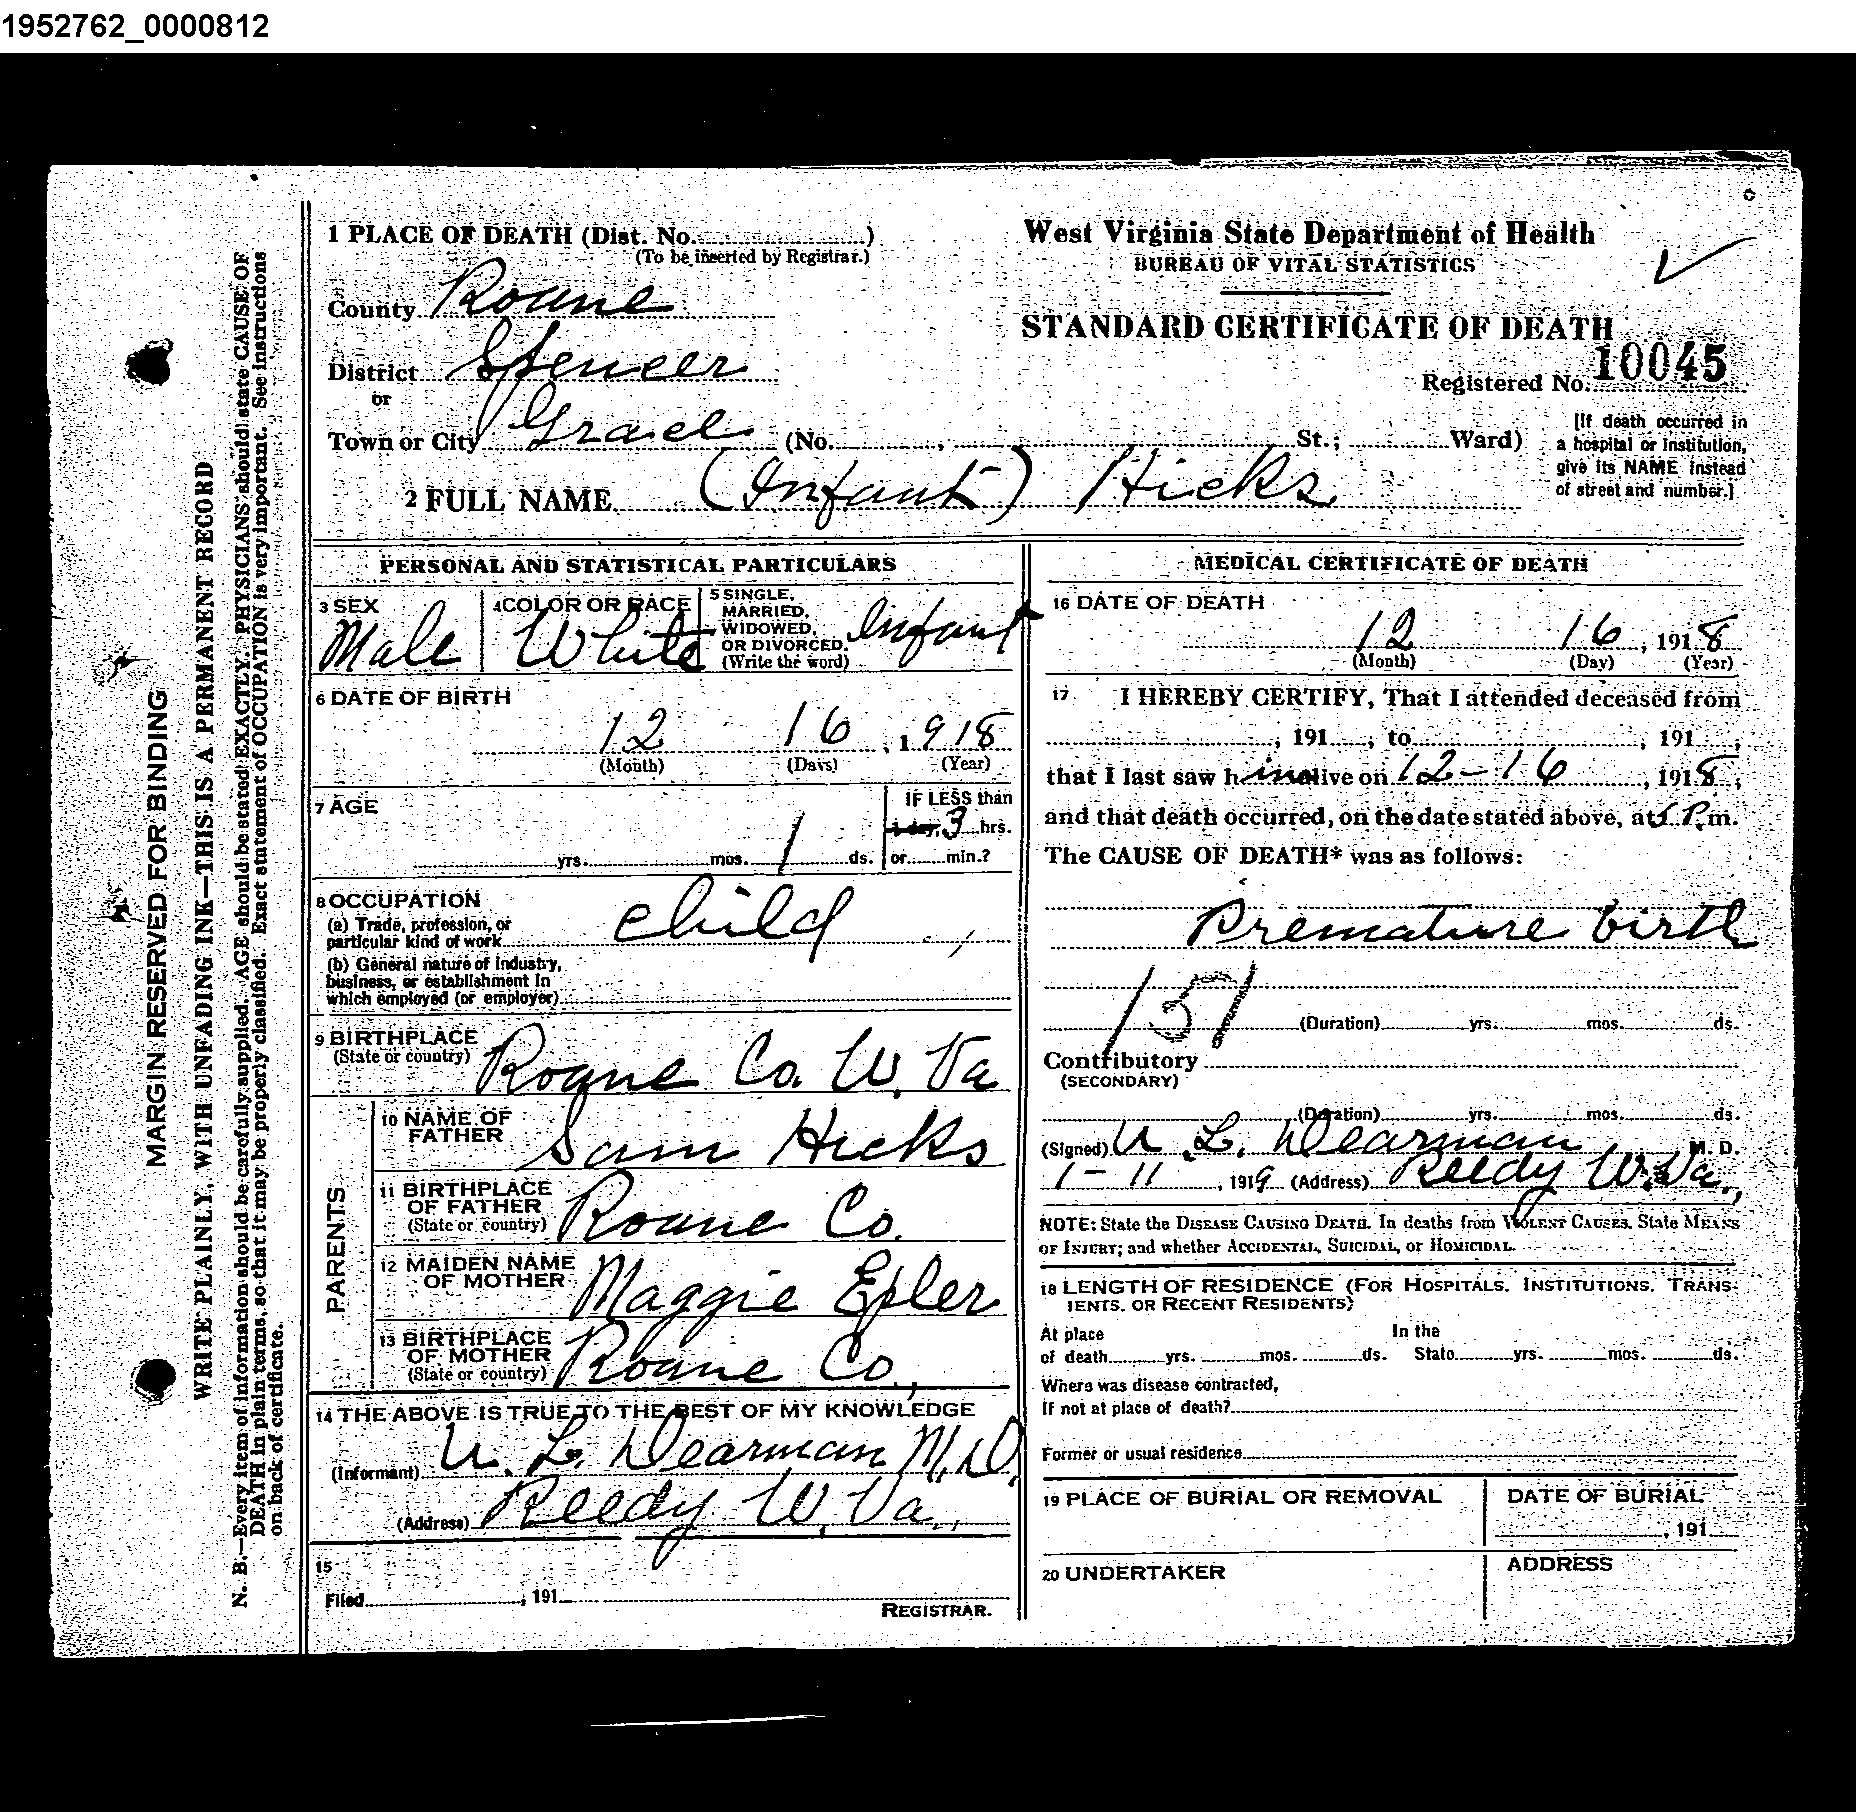 1952762_0000812
MARGIN RESERVED FOR BINDING
WRITE PLAINLY, WITH UNFADING INK—THIS IS A PERMANENT RECORD
N. B.—Every item of information should be carefully supplied. AGE should be stated EXACTLY. PHYSICIANS should state CAUSE OF
DEATH in plain terms, so that it may be properly classified. Exact statement of OCCUPATION is very important. See instructions
on back of certificate.
1 PLACE OF DEATH (Dist. No. )
(To be inserted by Registrar.)
County Roane
District Spencer
or
Town or City Grace (No. , St.; Ward)
West Virginia State Department of Health
BUREAU OF VITAL STATISTICS
STANDARD CERTIFICATE OF DEATH
Registered No. 10045
[If death occurred in
a hospital or institution,
give its NAME instead
of street and number.]
2 FULL NAME (Infant) Hicks
PERSONAL AND STATISTICAL PARTICULARS
3 SEX
Male
4 COLOR OR RACE
White
5 SINGLE,
MARRIED,
WIDOWED,
OR DIVORCED.
(Write the word)
Infant
6 DATE OF BIRTH
12 16, 1918
(Month) (Days) (Year)
7 AGE
yrs. mos. 1 ds.
IF LESS than
1 day, 3 hrs.
or min.?
8 OCCUPATION
(a) Trade, profession, or
particular kind of work child
(b) General nature of industry,
business, or establishment in
which employed (or employer)
9 BIRTHPLACE
(State or country) Roane Co. W. Va
PARENTS
10 NAME OF
FATHER Sam Hicks
11 BIRTHPLACE
OF FATHER
(State or country) Roane Co.
12 MAIDEN NAME
OF MOTHER Maggie Epler
13 BIRTHPLACE
OF MOTHER
(State or country) Roane Co.,
14 THE ABOVE IS TRUE TO THE BEST OF MY KNOWLEDGE
(Informant) U. L. Dearman M.D.
(Address) Reedy W. Va.,
15
Filed , 191
REGISTRAR.
MEDICAL CERTIFICATE OF DEATH
16 DATE OF DEATH
12 16, 1918
(Month) (Day) (Year)
17 I HEREBY CERTIFY, That I attended deceased from
, 191 , to , 191 ,
that I last saw him alive on 12-16, 1918,
and that death occurred, on the date stated above, at 5 P.m.
The CAUSE OF DEATH* was as follows:
Premature birth
151
(Duration) yrs. mos. ds.
Contributory
(SECONDARY)
(Duration) yrs. mos. ds.
(Signed) U. L. Dearman M. D.
1-11, 1919 (Address) Reedy W. Va.,
NOTE: State the DISEASE CAUSING DEATH. In deaths from VIOLENT CAUSES. State MEANS
OF INJURY; and whether ACCIDENTAL, SUICIDAL, or HOMICIDAL.
18 LENGTH OF RESIDENCE (FOR HOSPITALS. INSTITUTIONS. TRANS-
IENTS. OR RECENT RESIDENTS)
At place In the
of death yrs. mos. ds. State yrs. mos. ds.
Where was disease contracted,
If not at place of death?
Former or usual residence
19 PLACE OF BURIAL OR REMOVAL
DATE OF BURIAL
, 191
20 UNDERTAKER
ADDRESS